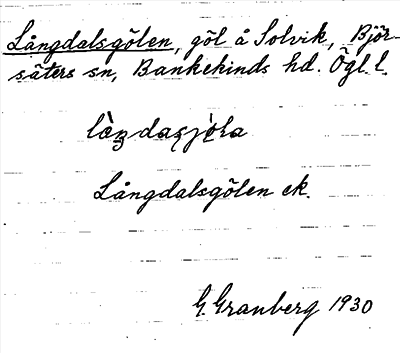 Långdalsgölen, göl å Solvik, Björ-
säters sn, Bankekinds hd. Ögl. l.
Långdalsgölen ek.
G. Granberg 1930